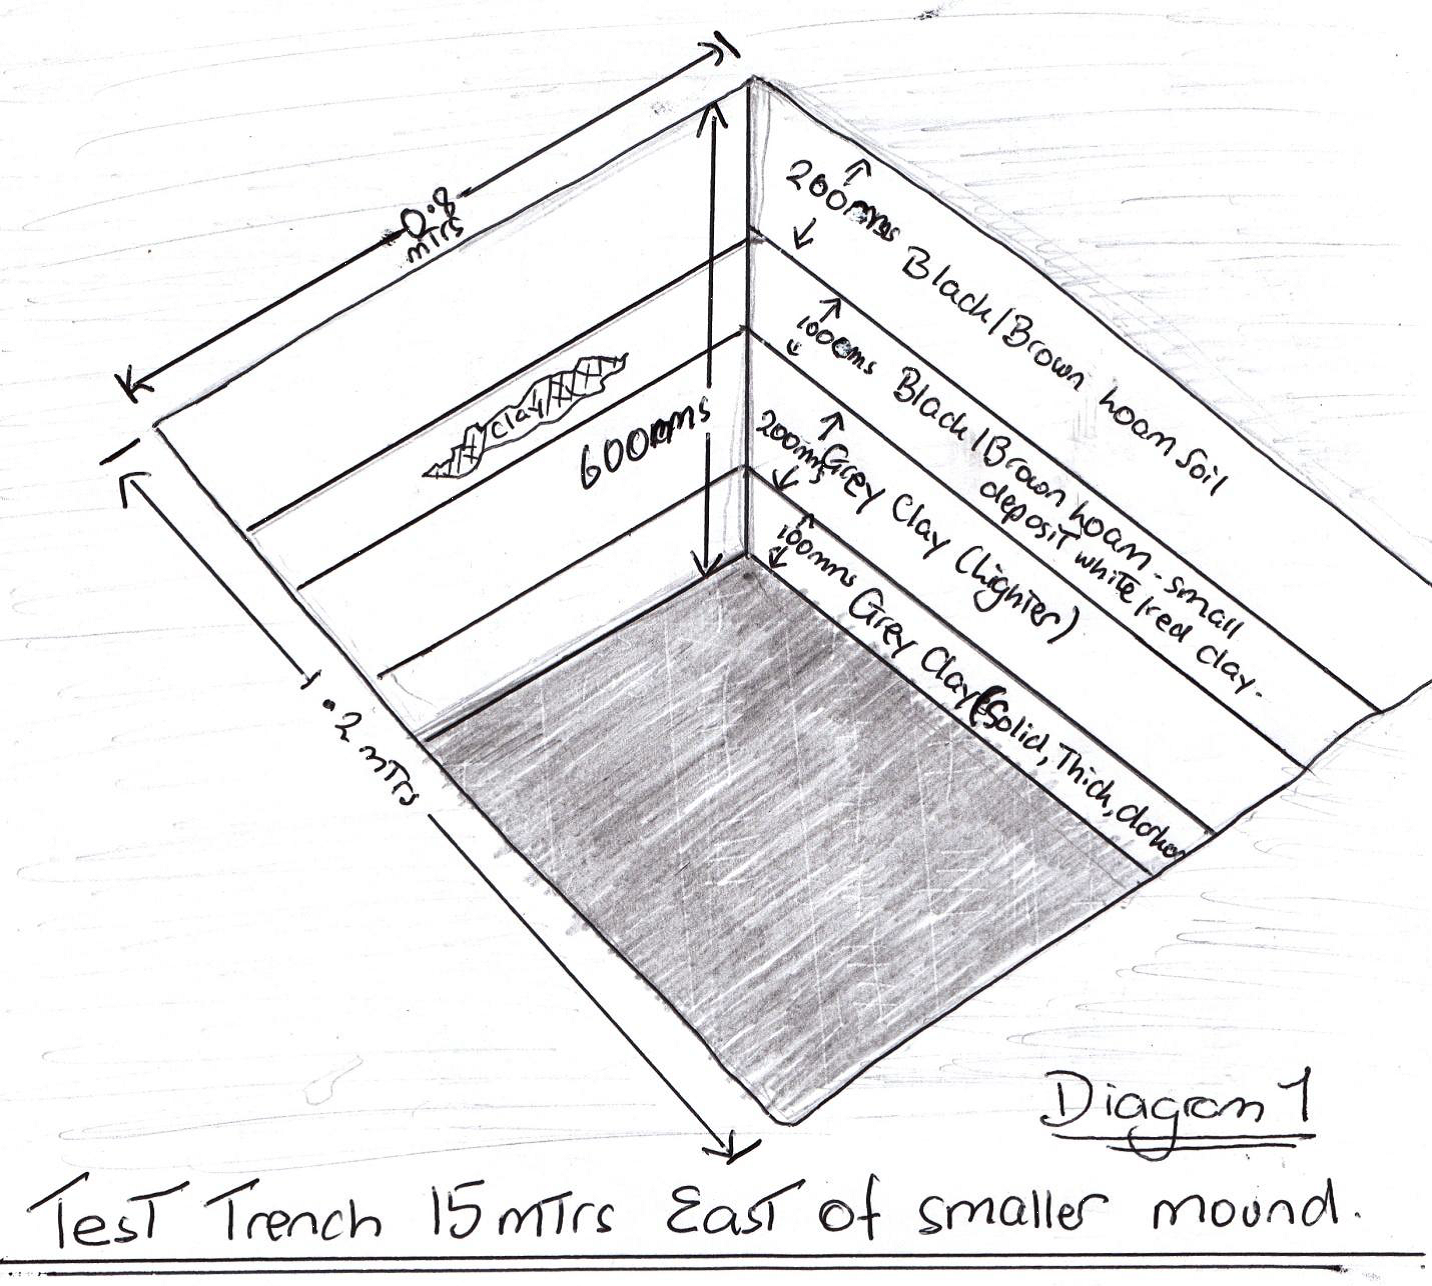 0.8
mTrs
200mms Black/Brown Loam Soil
100mms Black/Brown Loam - small
deposit white/red clay.
clay
600mms
200mms Grey Clay (lighter)
100mms Grey Clay (Solid, Thick, darker
1.2 mTrs
Diagram 1
Test Trench 15mTrs East of smaller mound.